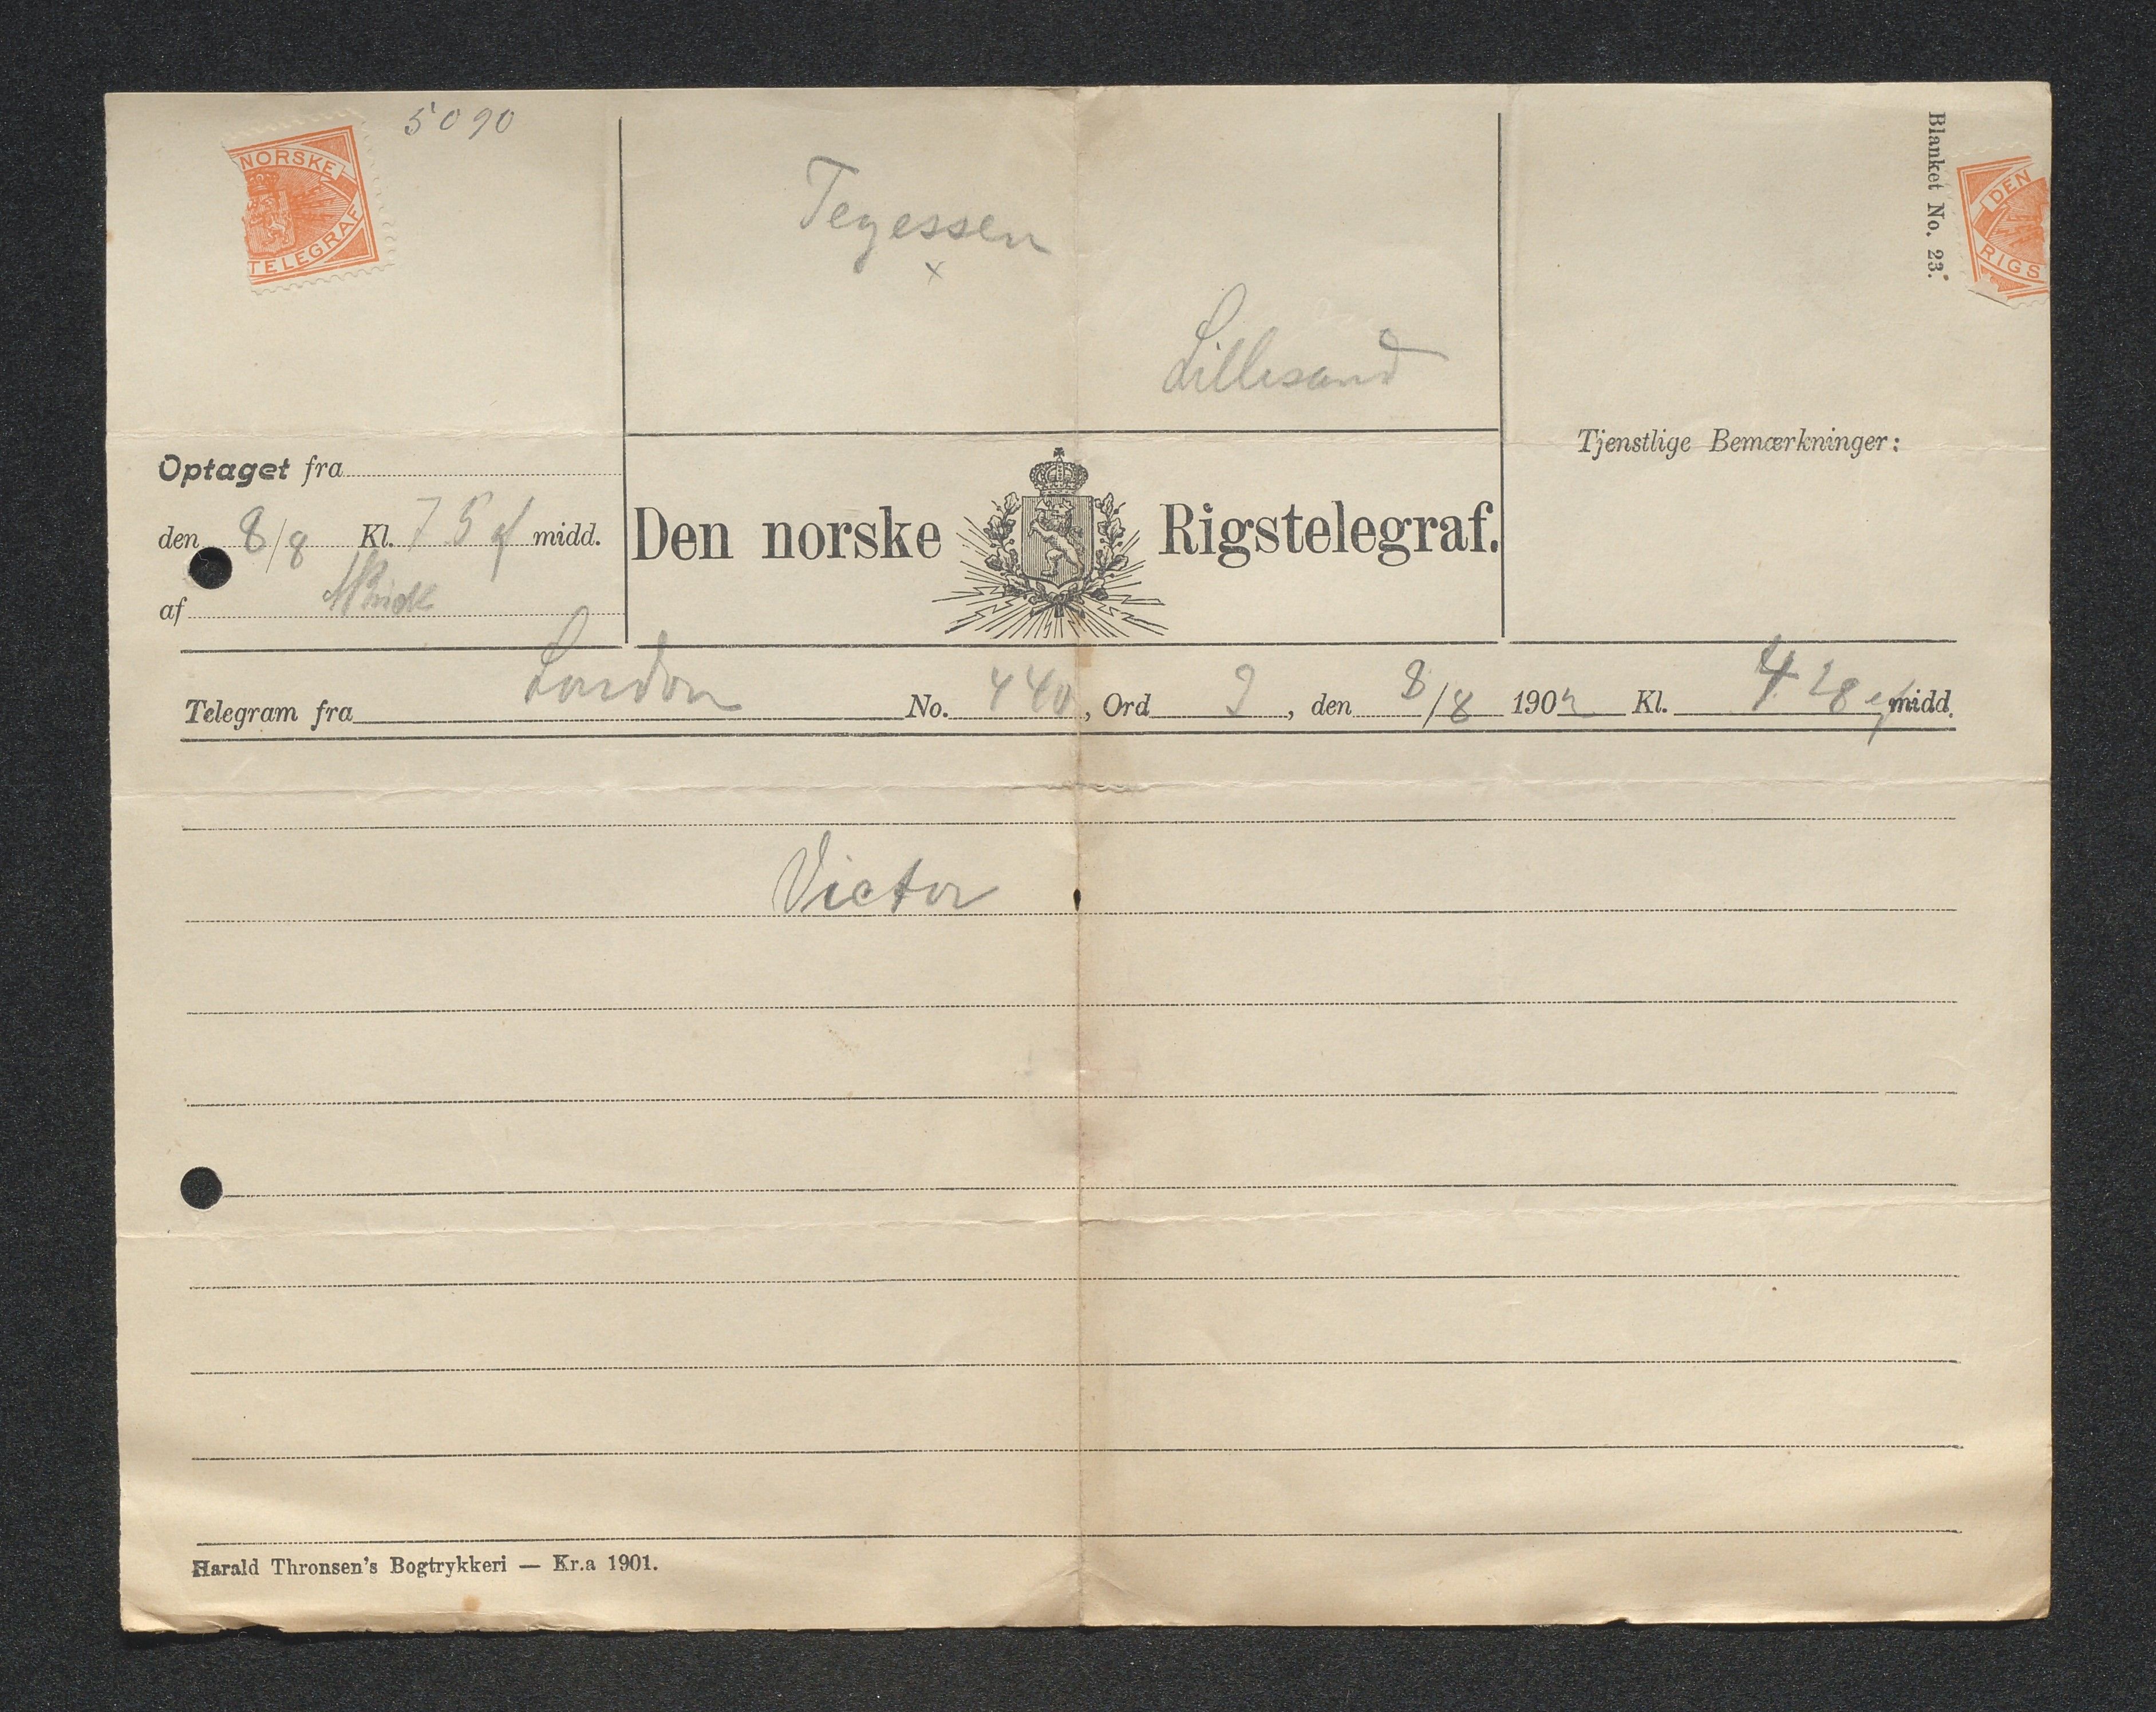 5090
NORSKE
TELEGRAF
Tegessen
x
Lillesand
Blanket No. 23.
DEN
RIGS
Optaget fra
den 8/8 Kl. 7 5 ef midd.
af
Den norske Rigstelegraf.
Tjenstlige Bemærkninger:
Telegram fra London No. 440, Ord 3, den 8/8 1902 Kl. 4 28 ef midd.
Victor
Harald Thronsen's Bogtrykkeri — Kr.a 1901.